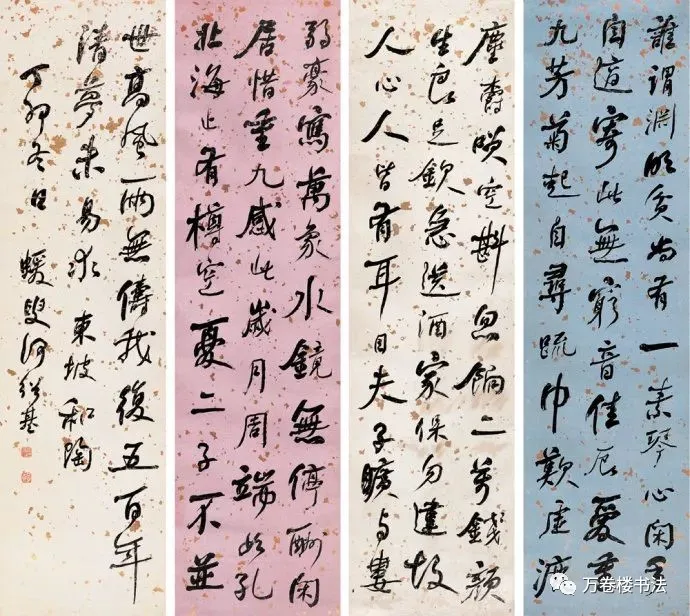 誰謂淵明貧尚有一素琴心閑手
自適寄此無窮音佳辰愛重
九芳菊起自尋疏巾歎虛漉
塵爵咲空斟忽餉二萬錢顏
生良足欽急送酒家保勿違故
人心人皆有耳目夫子曠与婁
弱豪寫萬象水鏡無停酬閑
居惜重九感此歲月周端如孔
北海止有樽空憂二子不並
世高風兩無儔我後五百年
清夢未易求 東坡和陶
丁卯冬日 蝯叟何紹基
万卷楼书法